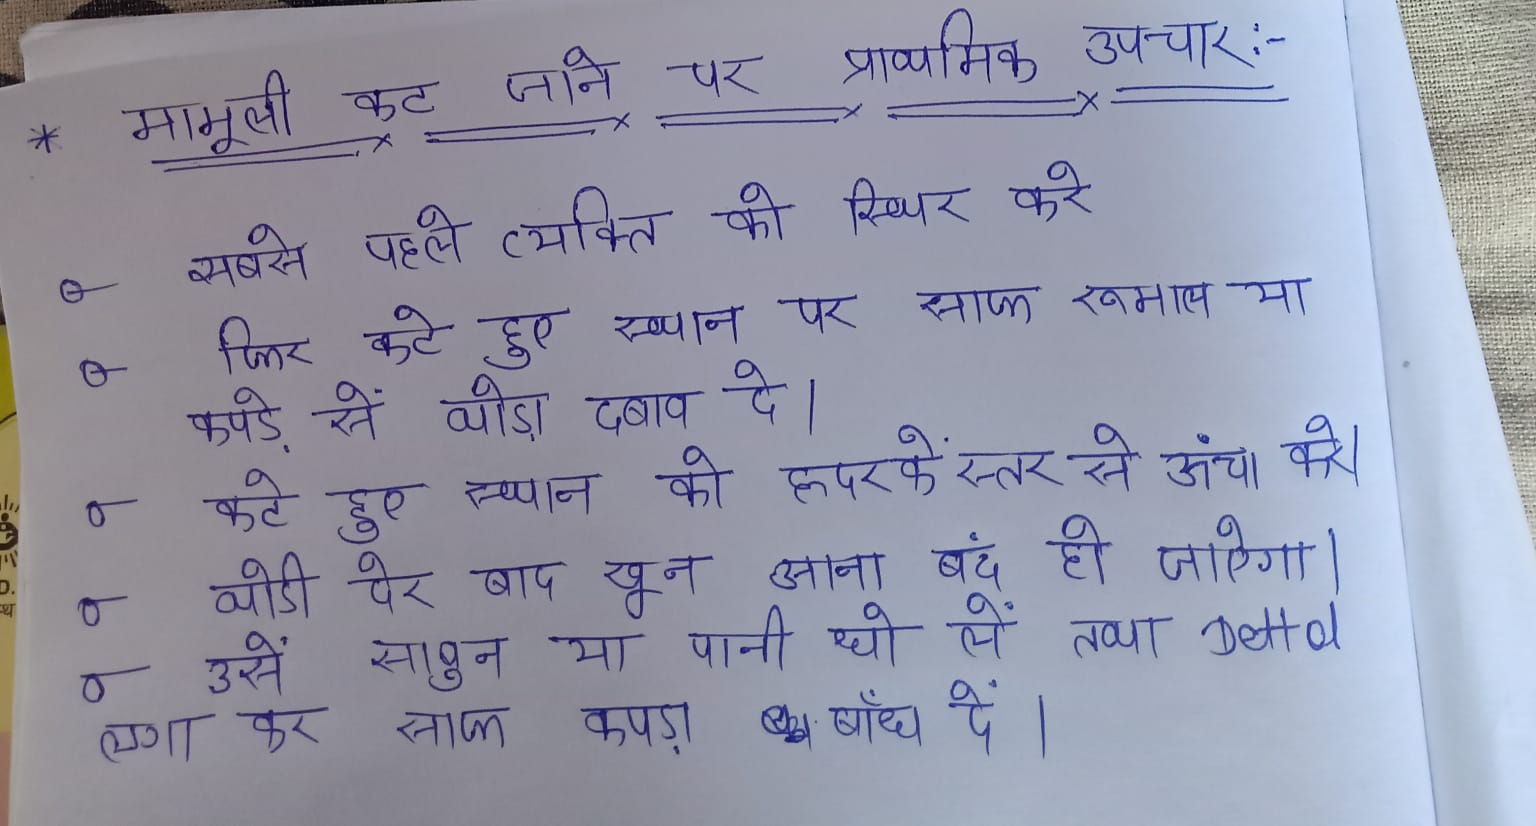 * मामूली कट जाने पर प्राथमिक उपचार :-
सबसे पहले व्यक्ति को स्थिर करे
फिर कटे हुए स्थान पर साफ रूमाल या
कपड़े सें थोड़ा दबाव दे।
कटे हुए स्थान को हृदय कें स्तर से ऊंचा करे।
थोडी देर बाद खून आना बंद हो जाऐगा।
उसें साबुन या पानी धो लें तथा Dettol
लगा कर साफ कपड़ा बाँध दें।